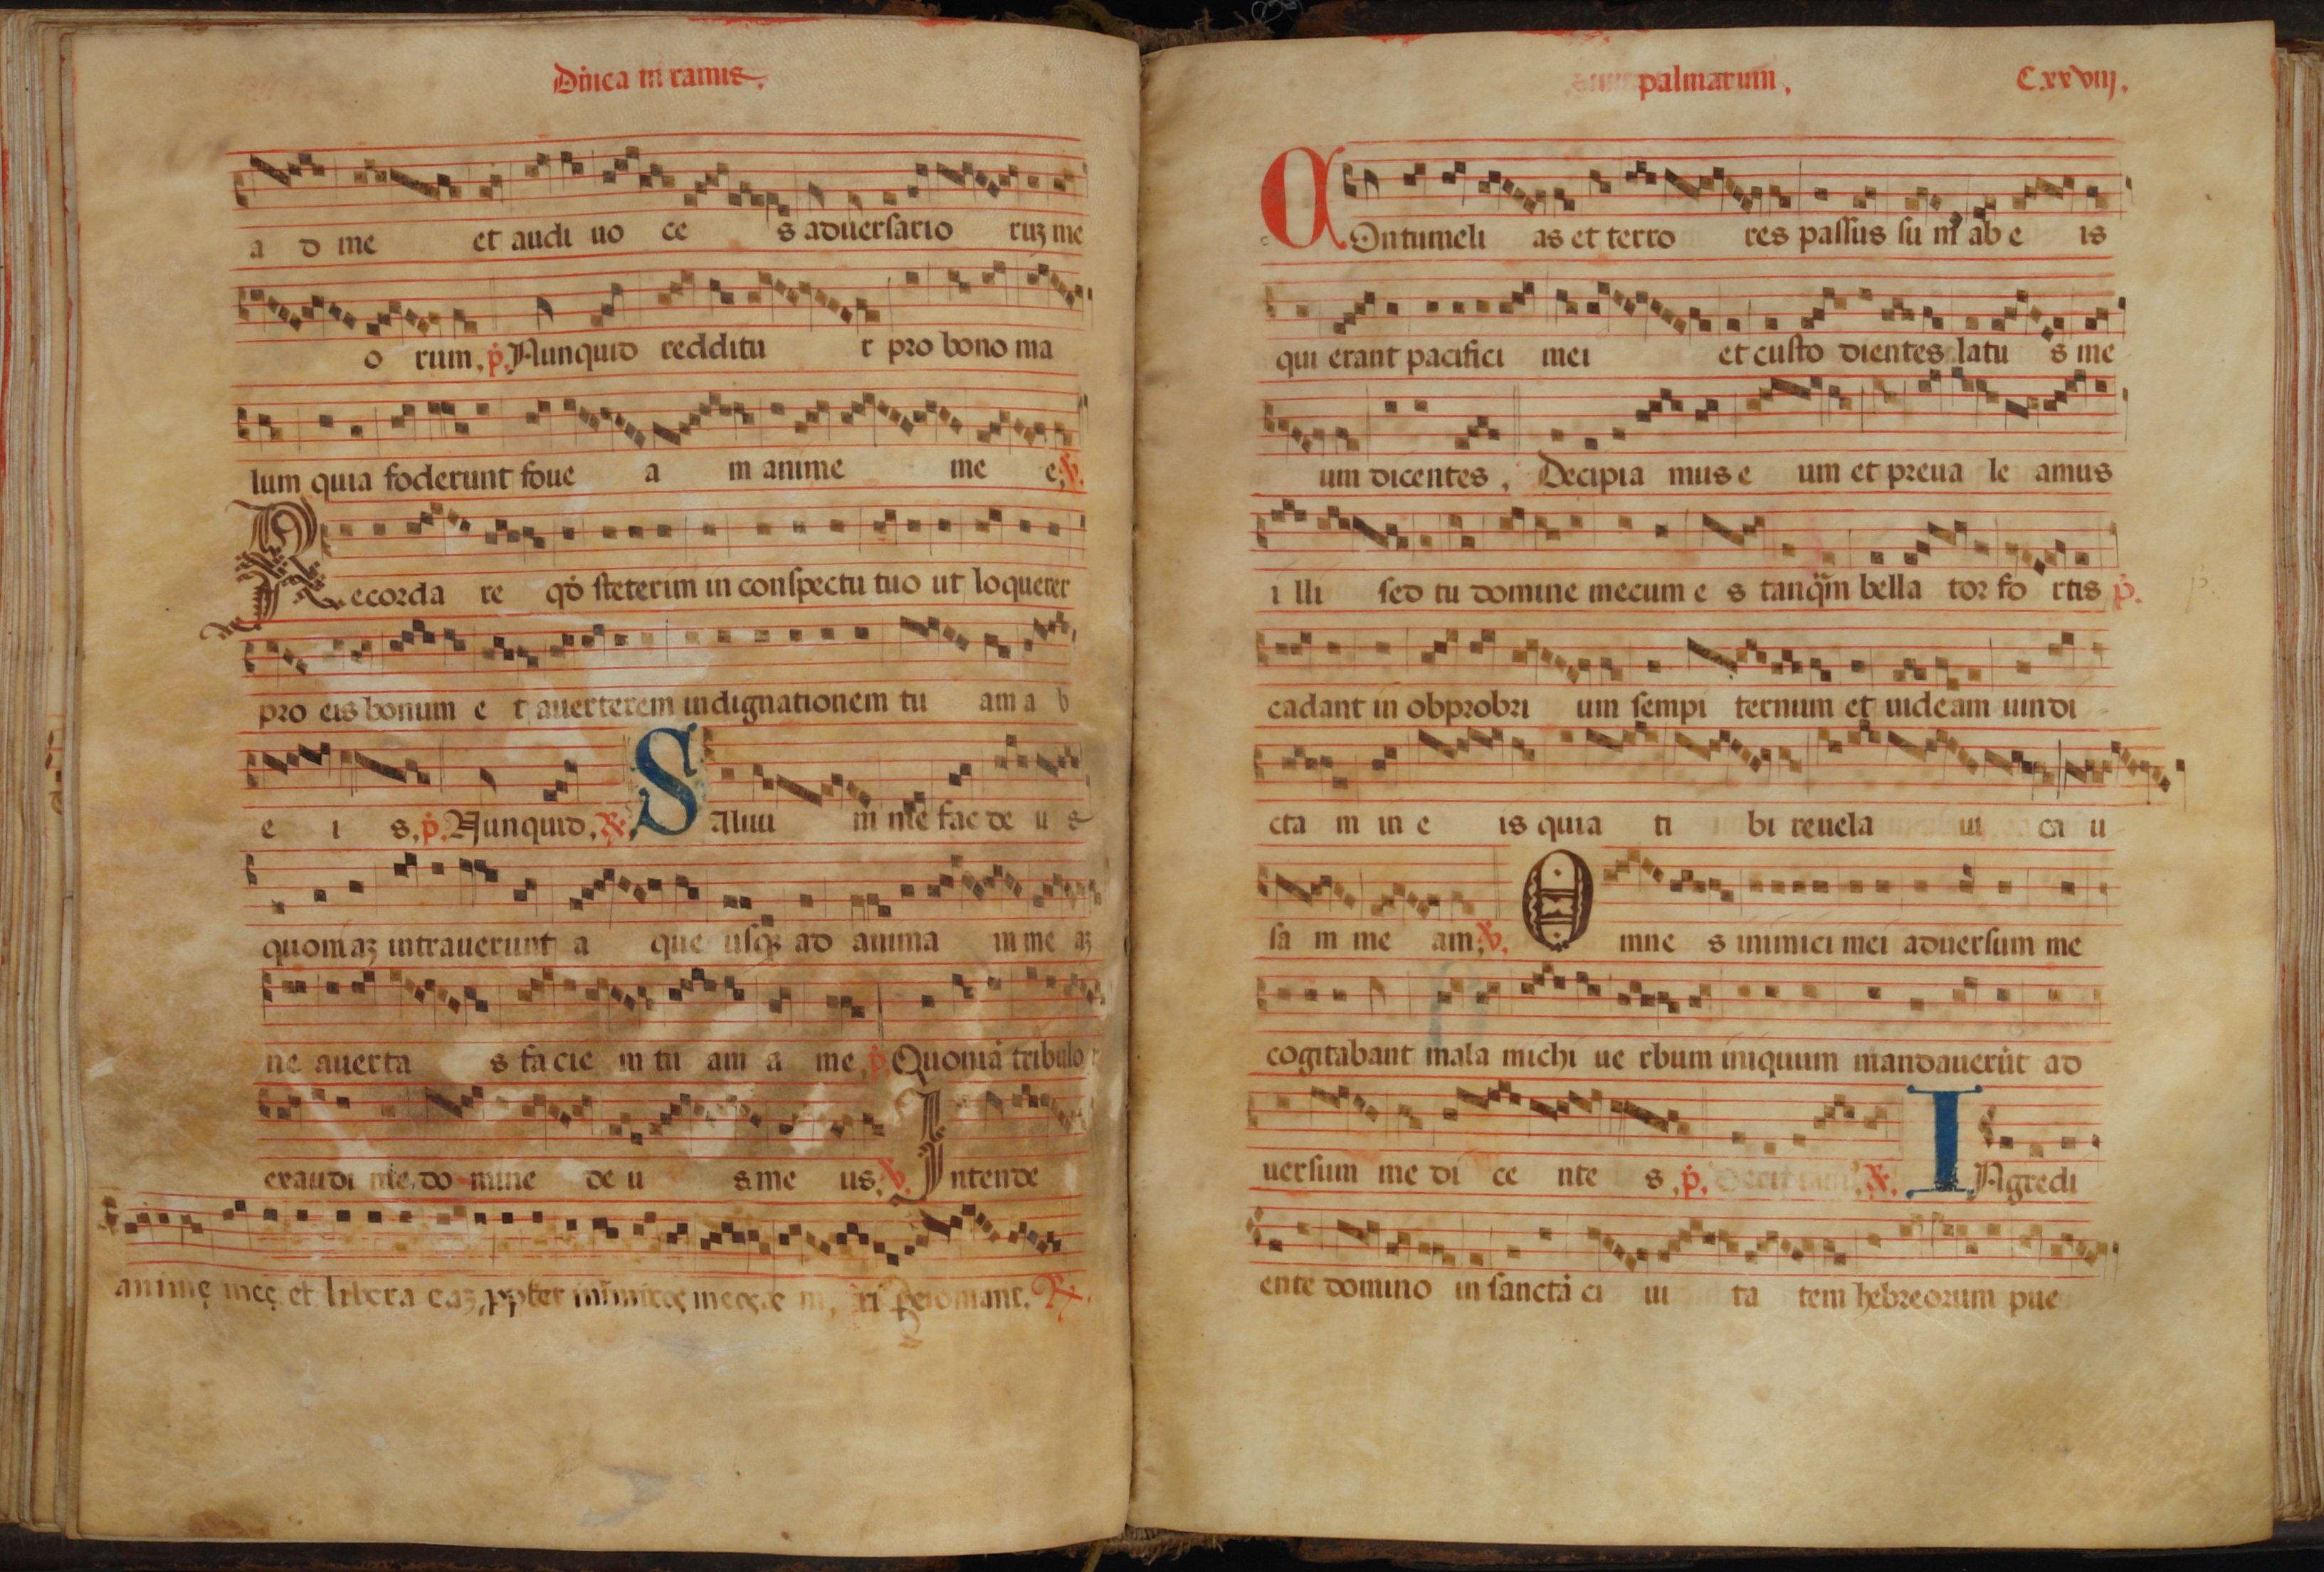 Dnıca in ramis.
a d me et audi uo ce s aduersario ruz me
o rum. p. Nunquid redditu r pro bono ma
lum quia foderunt foue a m anime me e. v.
Recorda re qd steterim in conspectu tuo ut loquerer
pro eis bonum e t auerterem indignationem tu am a b
e i s. p. Nunquid. R. Saluu m me fac de u s
quoniaz intrauerunt a que usqz ad anima m me az
ne auerta s facie m tu am a me. p. Quoniā tribulor
exaudi me do mine de u s me us. v. Intende
animę meę et libera eaz, ppter inimicos meos R.
palmarum. C.xxviij.
Contumeli as et terro res passus su m ab e is
qui erant pacifici mei et custo dientes latu s me
um dicentes. Decipia mus e um et preua le amus
i lli sed tu domine mecum e s tanq̄m bella tor fo rtis p.
cadant in obprobri um sempi ternum et uideam uindi
cta m in e is quia ti bi reuela ui ca u
sa m me am. v. Omne s inimici mei aduersum me
cogitabant mala michi ue rbum iniquum mandauerūt ad
uersum me di ce nte s. p. R. INgredi
ente domino in sanctā ci ui ta tem hebreorum pue